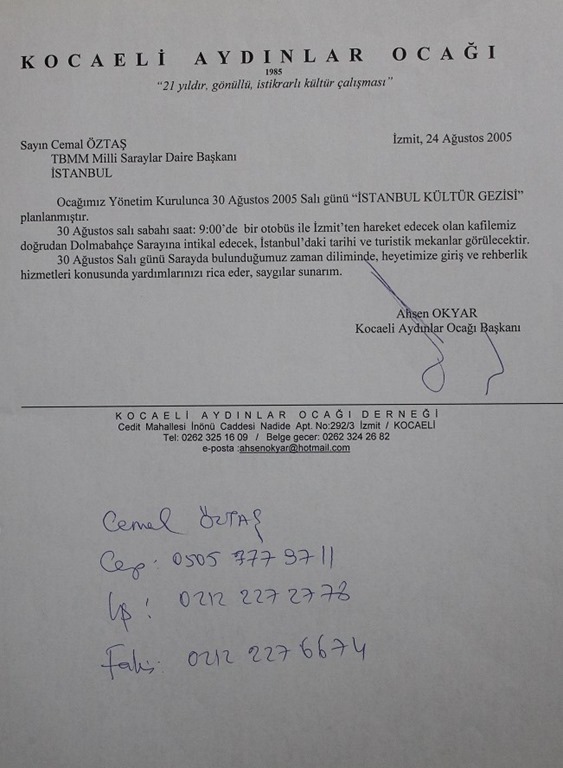 KOCAELİ AYDINLAR OCAĞI
1985
“21 yıldır, gönüllü, istikrarlı kültür çalışması”
Sayın Cemal ÖZTAŞ
İzmit, 24 Ağustos 2005
TBMM Milli Saraylar Daire Başkanı
İSTANBUL
Ocağımız Yönetim Kurulunca 30 Ağustos 2005 Salı günü “İSTANBUL KÜLTÜR GEZİSİ”
planlanmıştır.
30 Ağustos salı sabahı saat: 9:00’de bir otobüs ile İzmit’ten hareket edecek olan kafilemiz
doğrudan Dolmabahçe Sarayına intikal edecek, İstanbul’daki tarihi ve turistik mekanlar görülecektir.
30 Ağustos Salı günü Sarayda bulunduğumuz zaman diliminde, heyetimize giriş ve rehberlik
hizmetleri konusunda yardımlarınızı rica eder, saygılar sunarım.
Ahsen OKYAR
Kocaeli Aydınlar Ocağı Başkanı
KOCAELİ AYDINLAR OCAĞI DERNEĞİ
Cedit Mahallesi İnönü Caddesi Nadide Apt. No:292/3 İzmit / KOCAELİ
Tel: 0262 325 16 09 / Belge geçer: 0262 324 26 82
e-posta :ahsenokyar@hotmail.com
Cemal ÖZTAŞ
Cep: 0505 777 97 11
İş: 0212 227 27 78
Faks: 0212 227 66 74